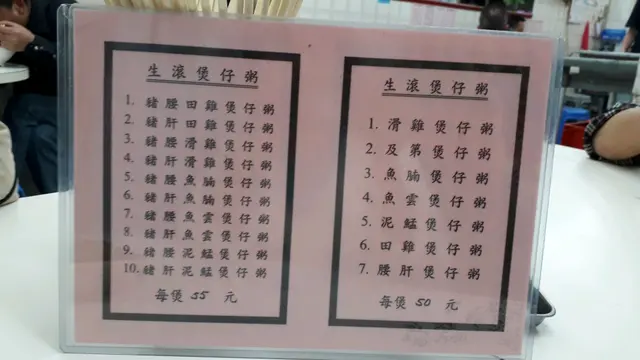 生滾煲仔粥
1. 豬腰田雞煲仔粥
2. 豬肝田雞煲仔粥
3. 豬腰滑雞煲仔粥
4. 豬肝滑雞煲仔粥
5. 豬腰魚腩煲仔粥
6. 豬肝魚腩煲仔粥
7. 豬腰魚雲煲仔粥
8. 豬肝魚雲煲仔粥
9. 豬腰泥鯭煲仔粥
10. 豬肝泥鯭煲仔粥
每煲 55 元
生滾煲仔粥
1. 滑雞煲仔粥
2. 及第煲仔粥
3. 魚腩煲仔粥
4. 魚雲煲仔粥
5. 泥鯭煲仔粥
6. 田雞煲仔粥
7. 腰肝煲仔粥
每煲 50 元